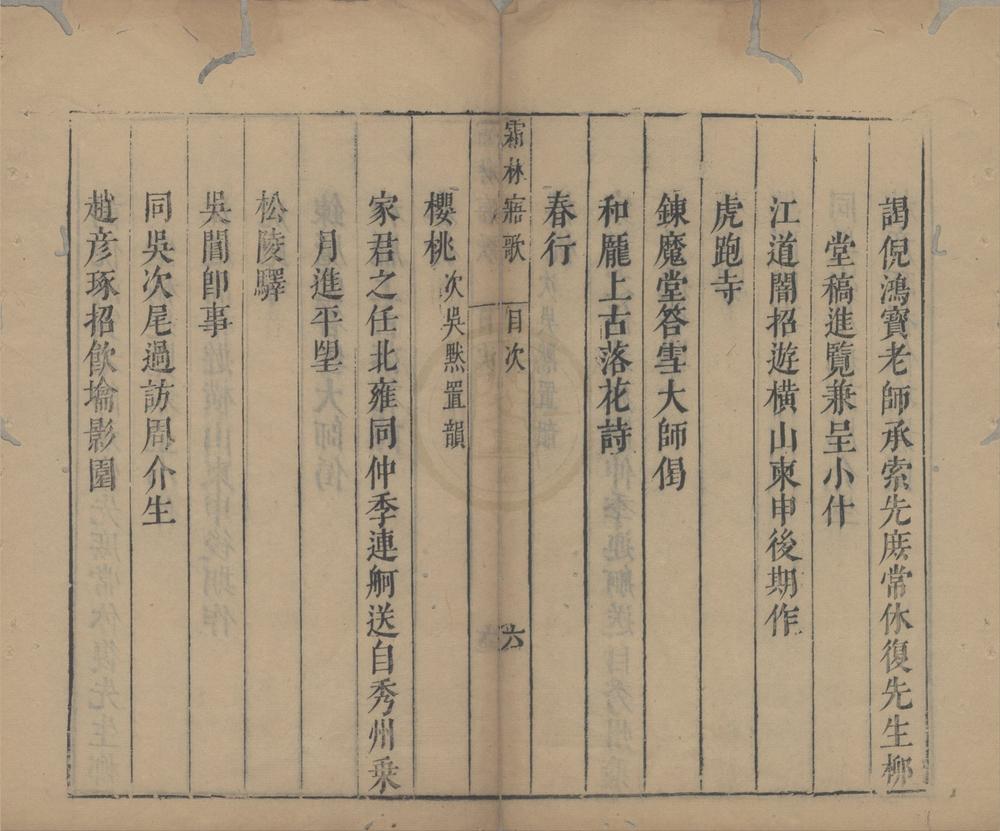 謁倪鴻寶老師承索先庶常休復先生栁
堂稿進覽兼呈小什
江道闇招遊橫山柬申後期作
虎跑寺
錬魔堂答雪大師偈
和龐上古落花詩
春行
霜林寤歌 目次 六
櫻桃次吳黙置韻
家君之任北雍同仲季連舸送自秀州乗
月進平朢
松陵驛
吳閶卽事
同吳次尾過訪周介生
趙彦琢招飲墖影園